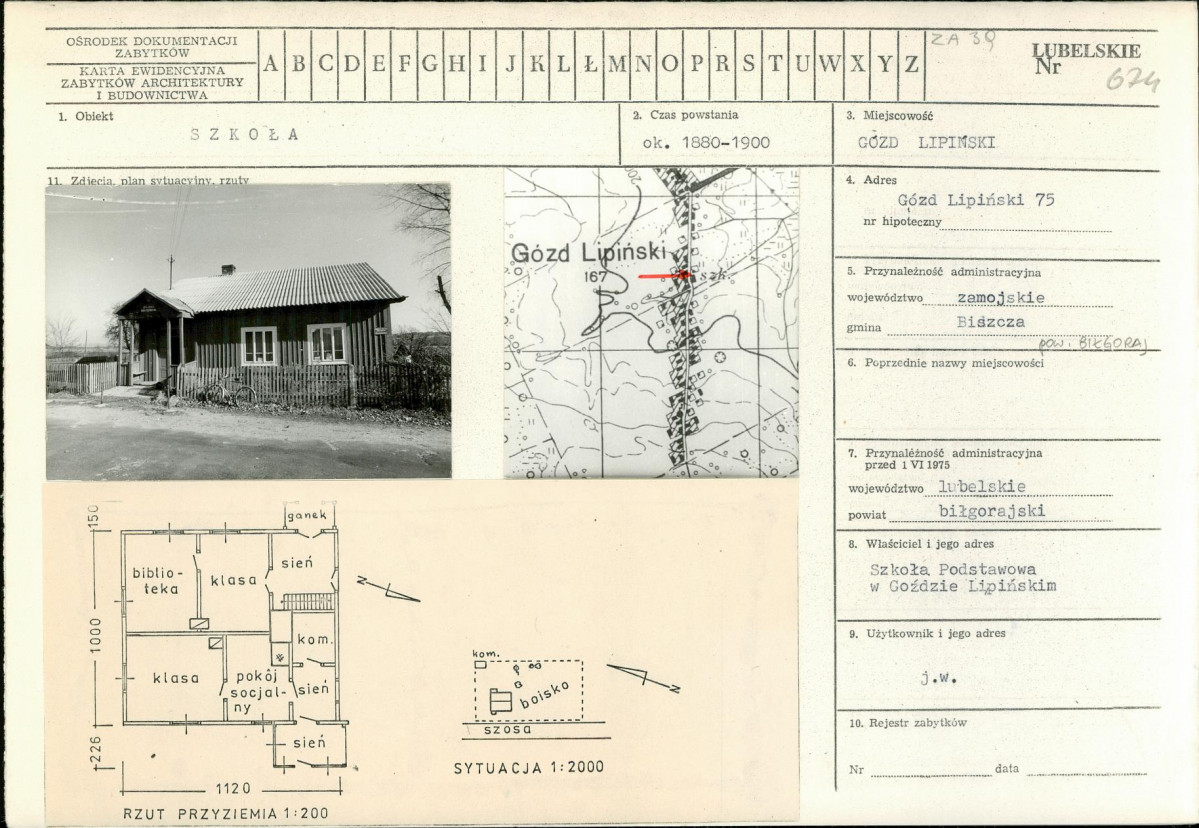 OŚRODEK DOKUMENTACJI
ZABYTKÓW
KARTA EWIDENCYJNA
ZABYTKÓW ARCHITEKTURY
I BUDOWNICTWA
A B C D E F G H I J K L Ł M N O P R S T U W X Y Z
ZA 39
LUBELSKIE
Nr
674
1. Obiekt
SZKOŁA
2. Czas powstania
ok. 1880-1900
3. Miejscowość
GÓZD LIPIŃSKI
11. Zdjęcia, plan sytuacyjny, rzuty
200
Gózd Lipiński
167
szk.
4. Adres
Gózd Lipiński 75
nr hipoteczny
5. Przynależność administracyjna
województwo zamojskie
gmina Biszcza
pow. BIŁGORAJ
6. Poprzednie nazwy miejscowości
7. Przynależność administracyjna
przed 1 VI 1975
województwo lubelskie
powiat biłgorajski
8. Właściciel i jego adres
Szkoła Podstawowa
w Goździe Lipińskim
9. Użytkownik i jego adres
j.w.
10. Rejestr zabytków
Nr data
150
1000
226
1120
ganek
sień
biblio-
teka
klasa
kom.
klasa
pokój
socjal-
ny
sień
sień
N
RZUT PRZYZIEMIA 1:200
kom.
boisko
szosa
N
SYTUACJA 1:2000